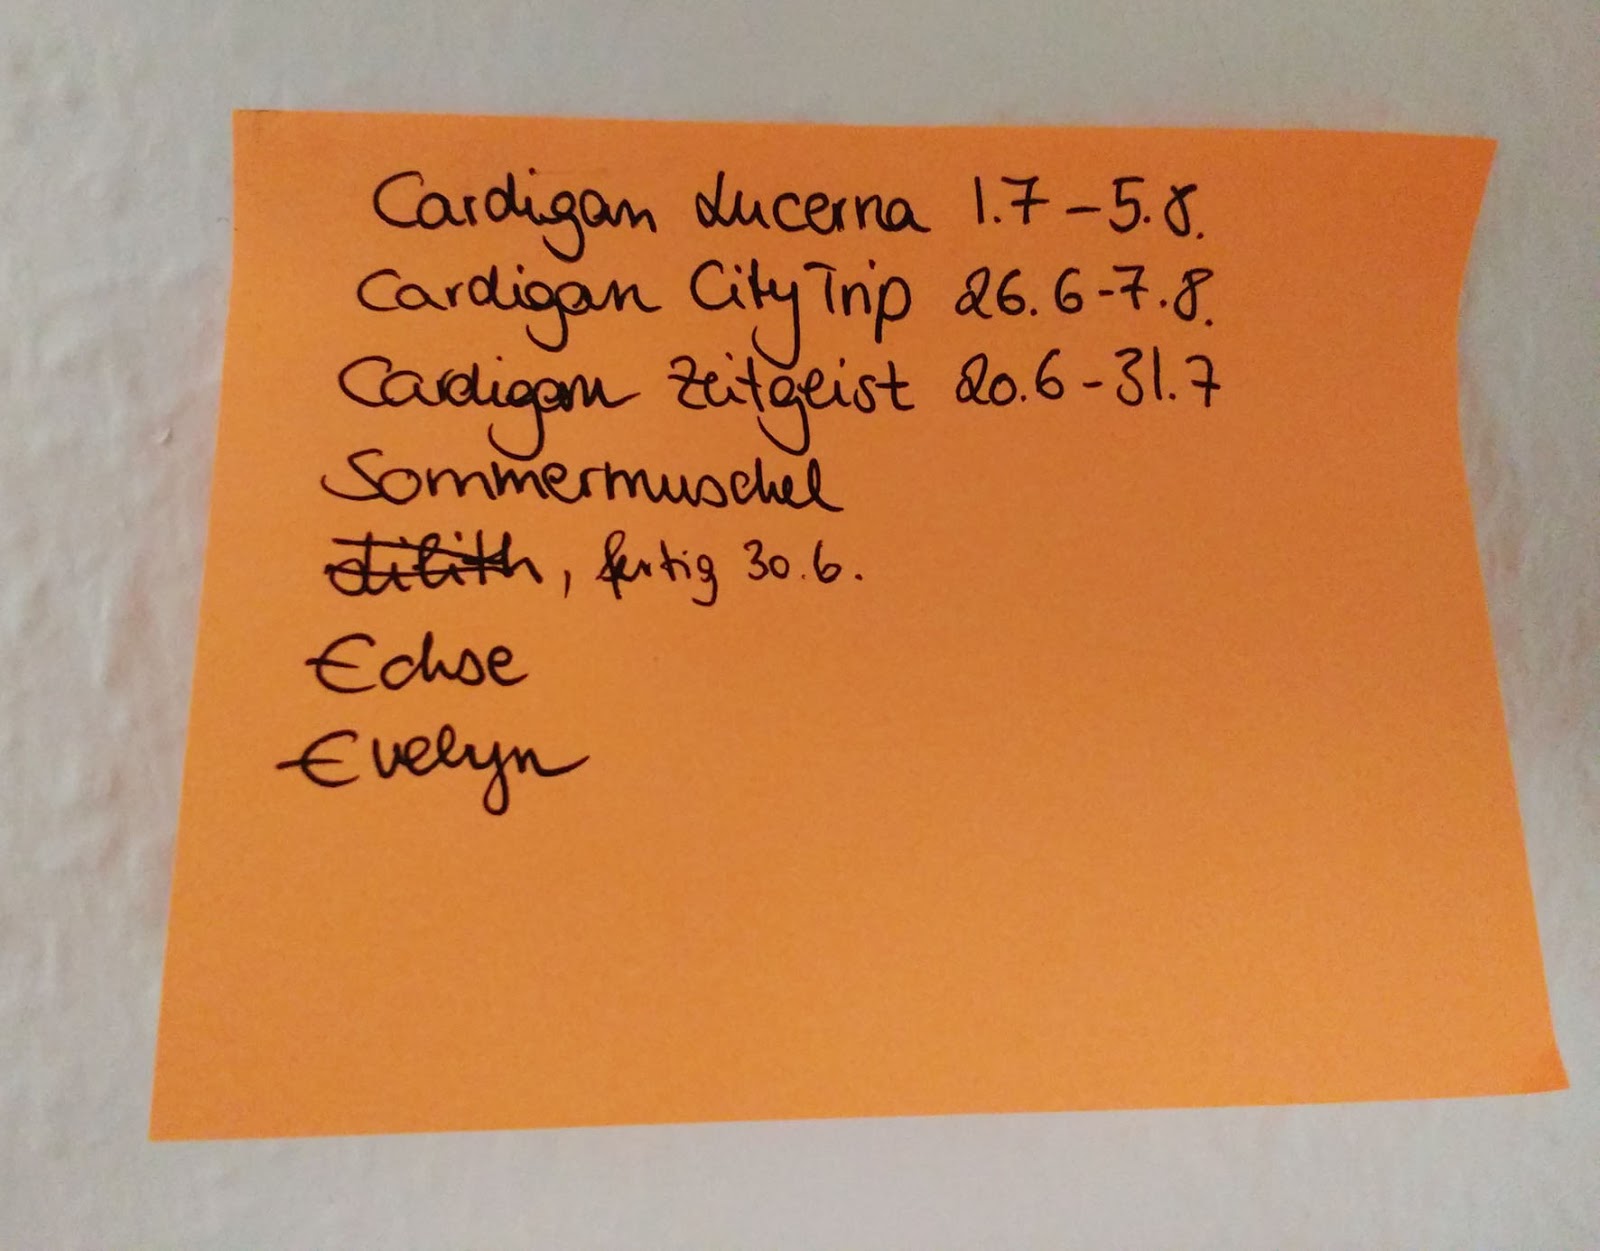 Cardigan Lucerna 1.7 - 5.8.
Cardigan CityTrip 26.6 - 7.8.
Cardigan Zeitgeist 20.6 - 31.7
Sommermuschel
Lilith, fertig 30.6.
Echse
Evelyn